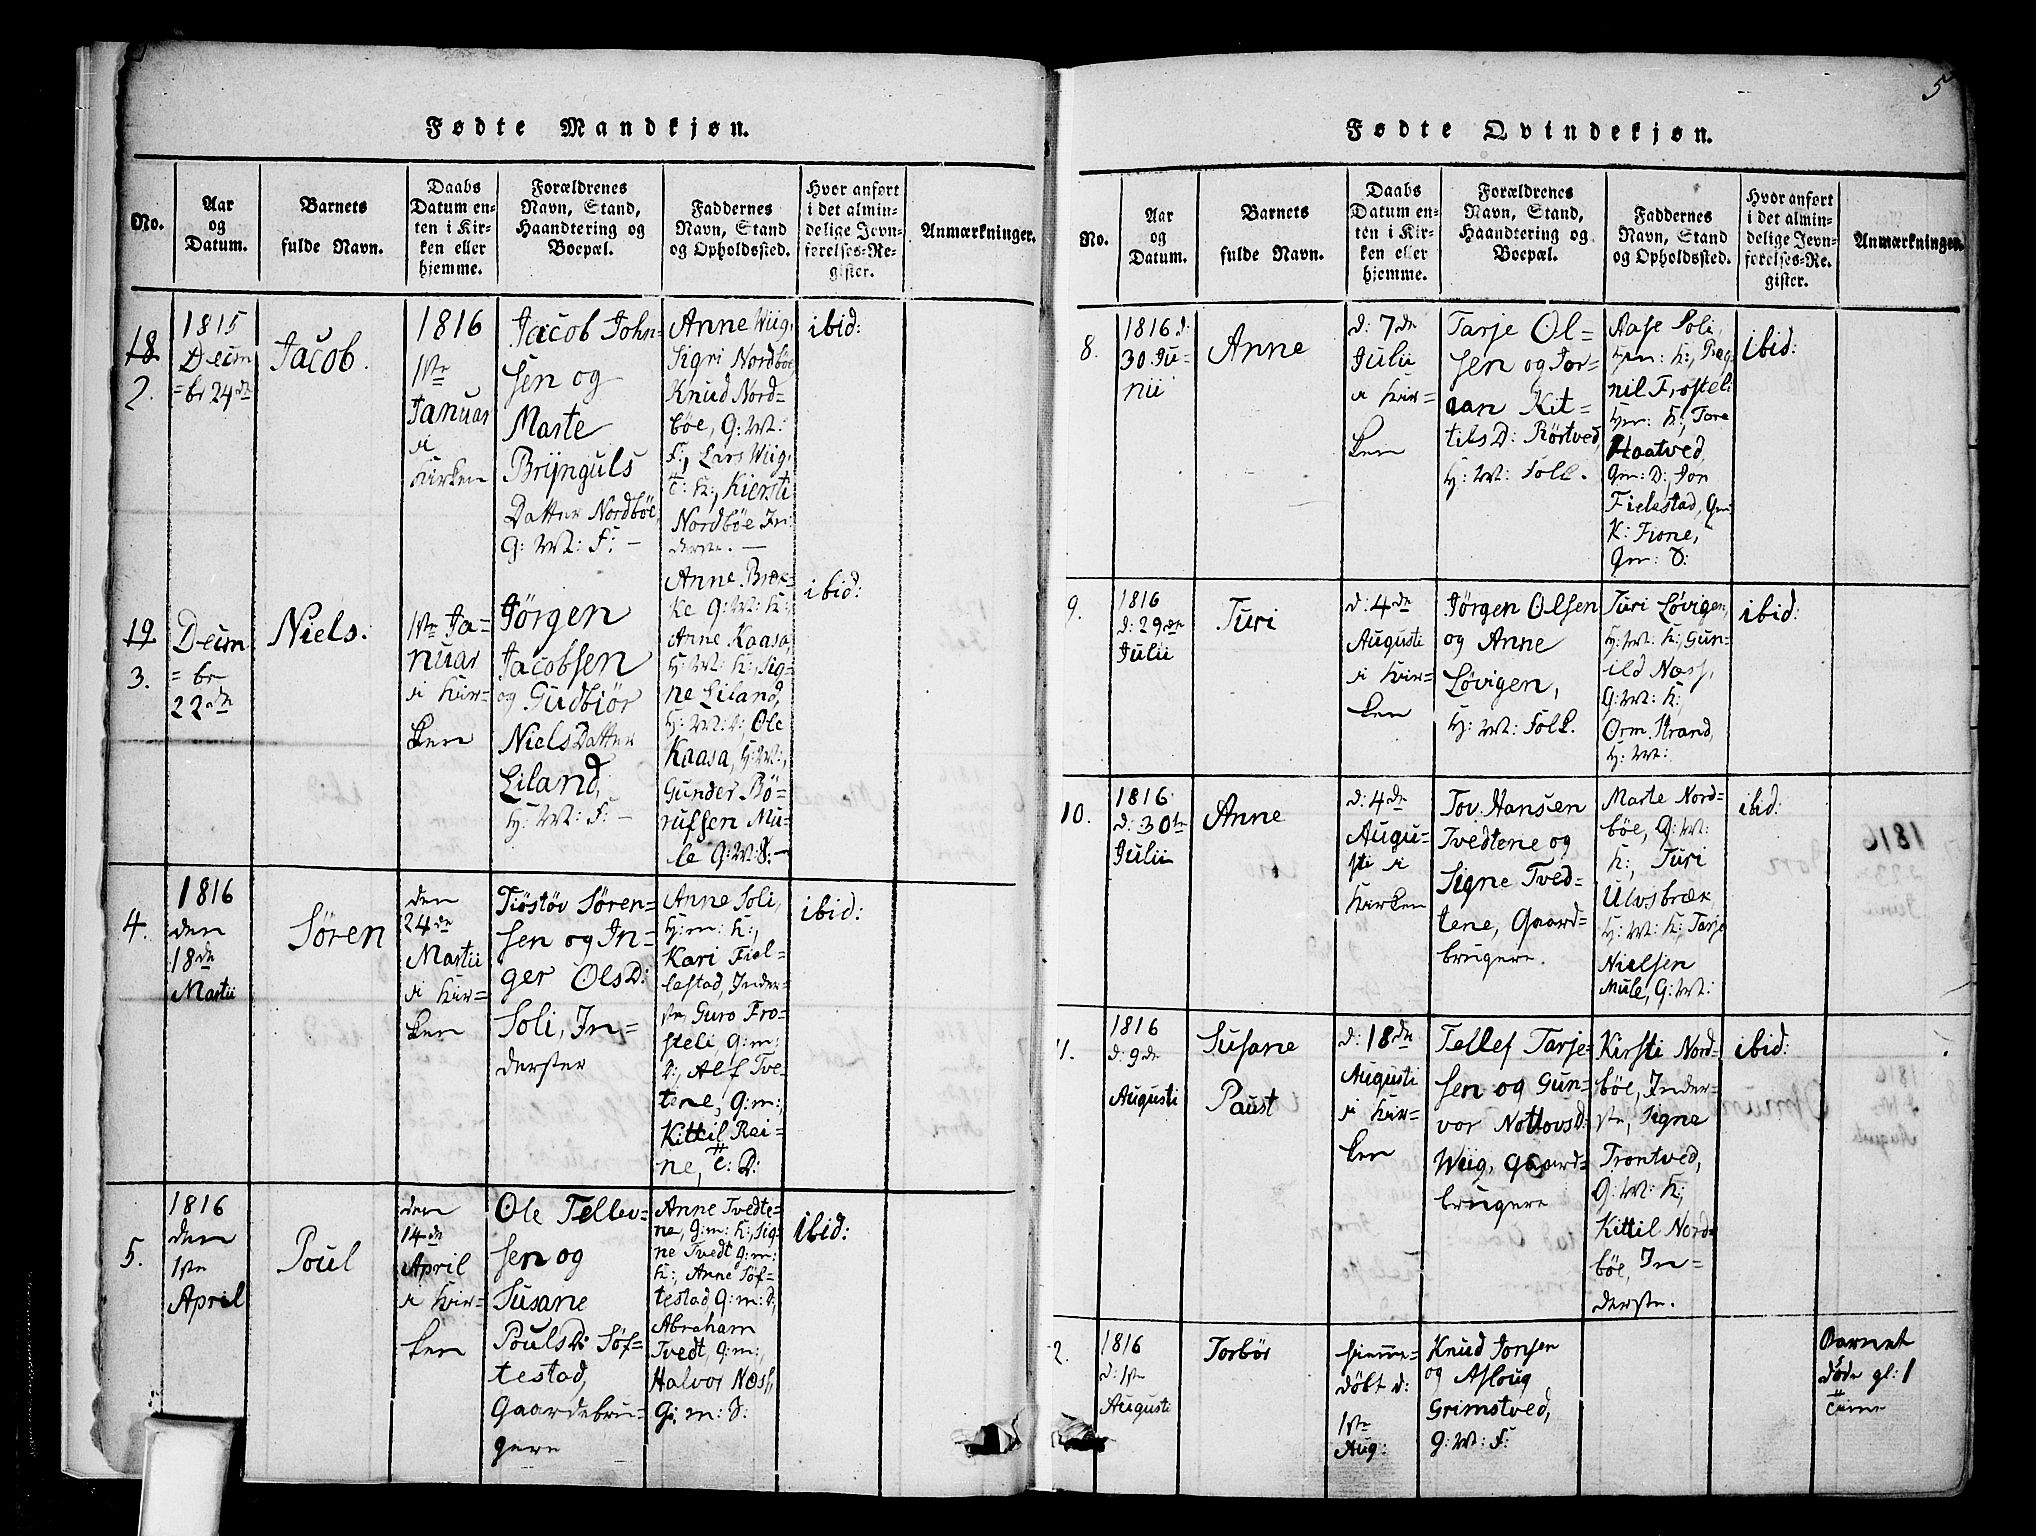 5
Fødte Mandkjøn.
No.
Aar
og
Datum.
Barnets
fulde Navn.
Daabs
Datum en-
ten i Kir-
ken eller
hjemme.
Forældrenes
Navn, Stand,
Haandtering og
Boepæl.
Faddernes
Navn, Stand
og Opholdssted.
Hvor anført
i det almin-
delige Jevn-
førelses-Re-
gister.
Anmærkninger.
18
2.
1815
Decem
=br 24de
Jacob.
1816
1ste
Januar
i
Kirken
Jacob John-
sen og
Marte
Brÿnguls
Datter Nordböe,
G: M: F: —
Anne Wiig,
Sigri Nordböe
Knud Nord=
böe, G: M:
F:, Lars Wiig,
K:, Kiersti
Nordböe In
derste. —
ibid:
19
3.
Decem
= br
22de
Niels.
1ste Ja=
nuar
i Kir=
ken
Jörgen
Jacobsen
og Gudbiör
Niels Datter
Liland,
H: M: F: —
Anne Bræk=
ke G: M: K:,
Anne Kaasa,
H: M: K:, Sig=
ne Liland,
H: M: D: Ole
Kaasa, H: M:,
Gunder Bö=
rufsen Mu=
le G: M: S: —
ibid:
4.
1816
den
18de
Martii
Sören
den
24de
Martii
i Kir=
ken
Tiöstöv Sören=
sen og In=
ger Ols D:
Soli, In=
derster
Anne Soli,
H: m: K:,
Kari Fiel=
lestad, Inder=
ste, Guro Fro=
steli, G: m:
D:, Alf Tve=
tene, G: m:,
Kittil Rei=
ne,
ibid:
5.
1816
den
1ste
April
Poul
den
14de
April
i Kir=
ken
Ole Tellev=
sen og
Susane
Pouls D: Söf=
testad,
Gaardebru=
gere
Anne Tvedte=
ne, G: m: K:, Sig=
ne Tvedt G: m:
K:, Anne Söf=
testad, G: m: D:,
Abraham
Tvedt, G: m:,
Halvor Næss,
G: m: S:
ibid:
Fødte Qvindekjøn.
No.
Aar
og
Datum.
Barnets
fulde Navn.
Daabs
Datum en-
ten i Kir-
ken eller
hjemme.
Forældrenes
Navn, Stand,
Haandtering og
Boepæl.
Faddernes
Navn, Stand
og Opholdssted.
Hvor anført
i det almin-
delige Jevn-
førelses-Re-
gister.
Anmærkninger.
8.
1816 d.
30 Ju-
nii
Anne
d: 7de
Julii
i Kir=
ken
Tarje Ol=
sen og Jor=
aan Kit=
tils D: Rörtved,
H: M: Folk.
Aase Soli,
Hm: K:, Rag
nil Frosteli
Hm: K:, Tore
Haatved,
Gm: D:, Jon
Fielestad, Gm
K: Fione,
Gm: S:
ibid:
9.
1816
d: 29de
Julii
Turi
d: 4de
Augusti
i Kir=
ken
Jörgen Olsen
og Anne
Lövigen,
H: M: Folk.
Turi Lövigen,
H: M: K:, Gun=
ild Næss,
G: M: K:
Orm Strand,
H: M:
ibid:
10.
1816
d: 30te
Julii
Anne
d: 4de
Augu=
sti i
Kirken
Tov Hansen
Tvedtene og
Signe Tved=
tene, Gaard=
brugere.
Marte Nord=
böe, G: M:
K:, Turi
Ulvsbræk
H: M: K:, Tarje
Nielsen
Mule, G: M:
ibid:
11.
1816
d: 9de
Augusti
Susane
Paust
d: 18de
Augusti
i Kir=
ken
Tellef Tarje=
sen og Gun=
vor Nottovs D:
Wiig, Gaard=
brugere
Kirsti Nord=
böe, Inder=
ste, Signe
Trontved,
G: M: K:,
Kittil Nord=
böe, In=
derste.
ibid:
2.
1816
d: 1ste
Augusti
Torbör
hiemme=
döbt d:
1ste
Aug:
Knud Jonsen
og Asloug
Grimstved,
G: M: F:
Barnet
döde gl: 1
Time